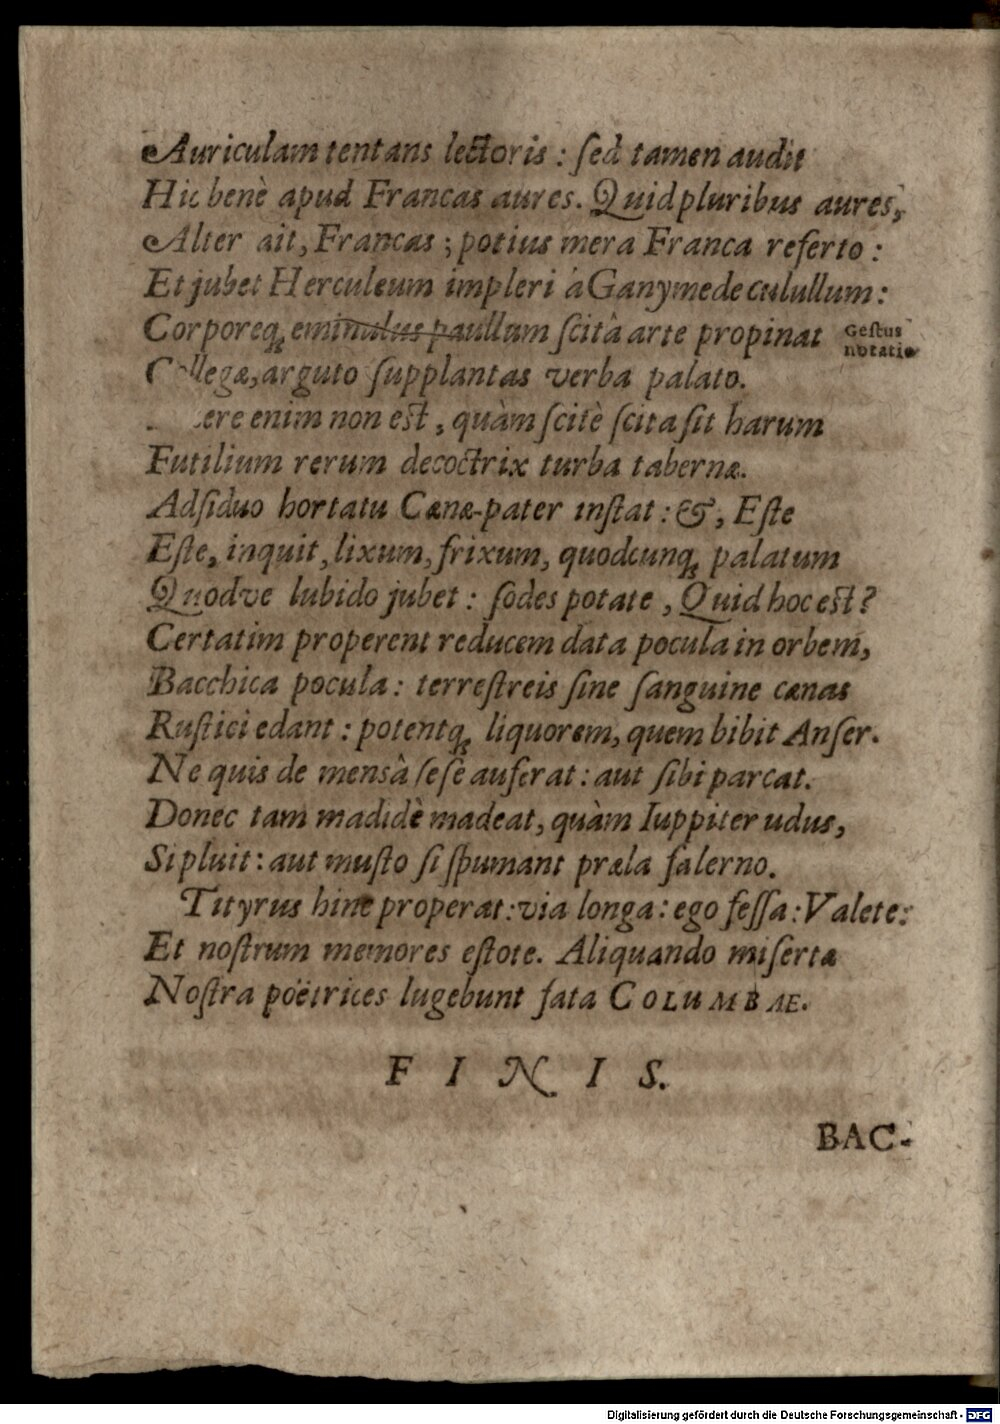 Auriculam tentans lectoris : ſed tamen audit
Hic benè apud Francas aures. Quid pluribus aures,
Alter ait, Francas ; potius mera Franca referto :
Et jubet Herculeum impleri á Ganymede culullum :
Corporeq; eminulus paullum ſcitâ arte propinat
Gestus
notatio
Collegæ, arguto ſupplantas verba palato.
enim non est, quàm ſcitè ſcita ſit harum
Futilium rerum decoctrix turba tabernæ.
Adſiduo hortatu Cænæ-pater inſtat : &, Eſte
Eſte, inquit, lixum, frixum, quodcunq; palatum
Quodve lubido jubet : ſodes potate, Quid hoc est?
Certatim properent reducem data pocula in orbem,
Bacchica pocula : terreſtreis ſine ſanguine cænas
Ruſtici edant : potentq; liquorem, quem bibit Anſer.
Ne quis de mensà ſeſe auferat : aut ſibi parcat.
Donec tam madidè madeat, quàm Iuppiter udus,
Si pluit : aut muſto ſi ſpumant præla falerno.
Tityrus hinc properat : via longa : ego feſſa : Valete :
Et noſtrum memores eſtote. Aliquando miſertæ
Noſtra poëtrices lugebunt fata COLUMBAE.
FINIS.
BAC-
Digitalisierung gefördert durch die Deutsche Forschungsgemeinschaft - DFG